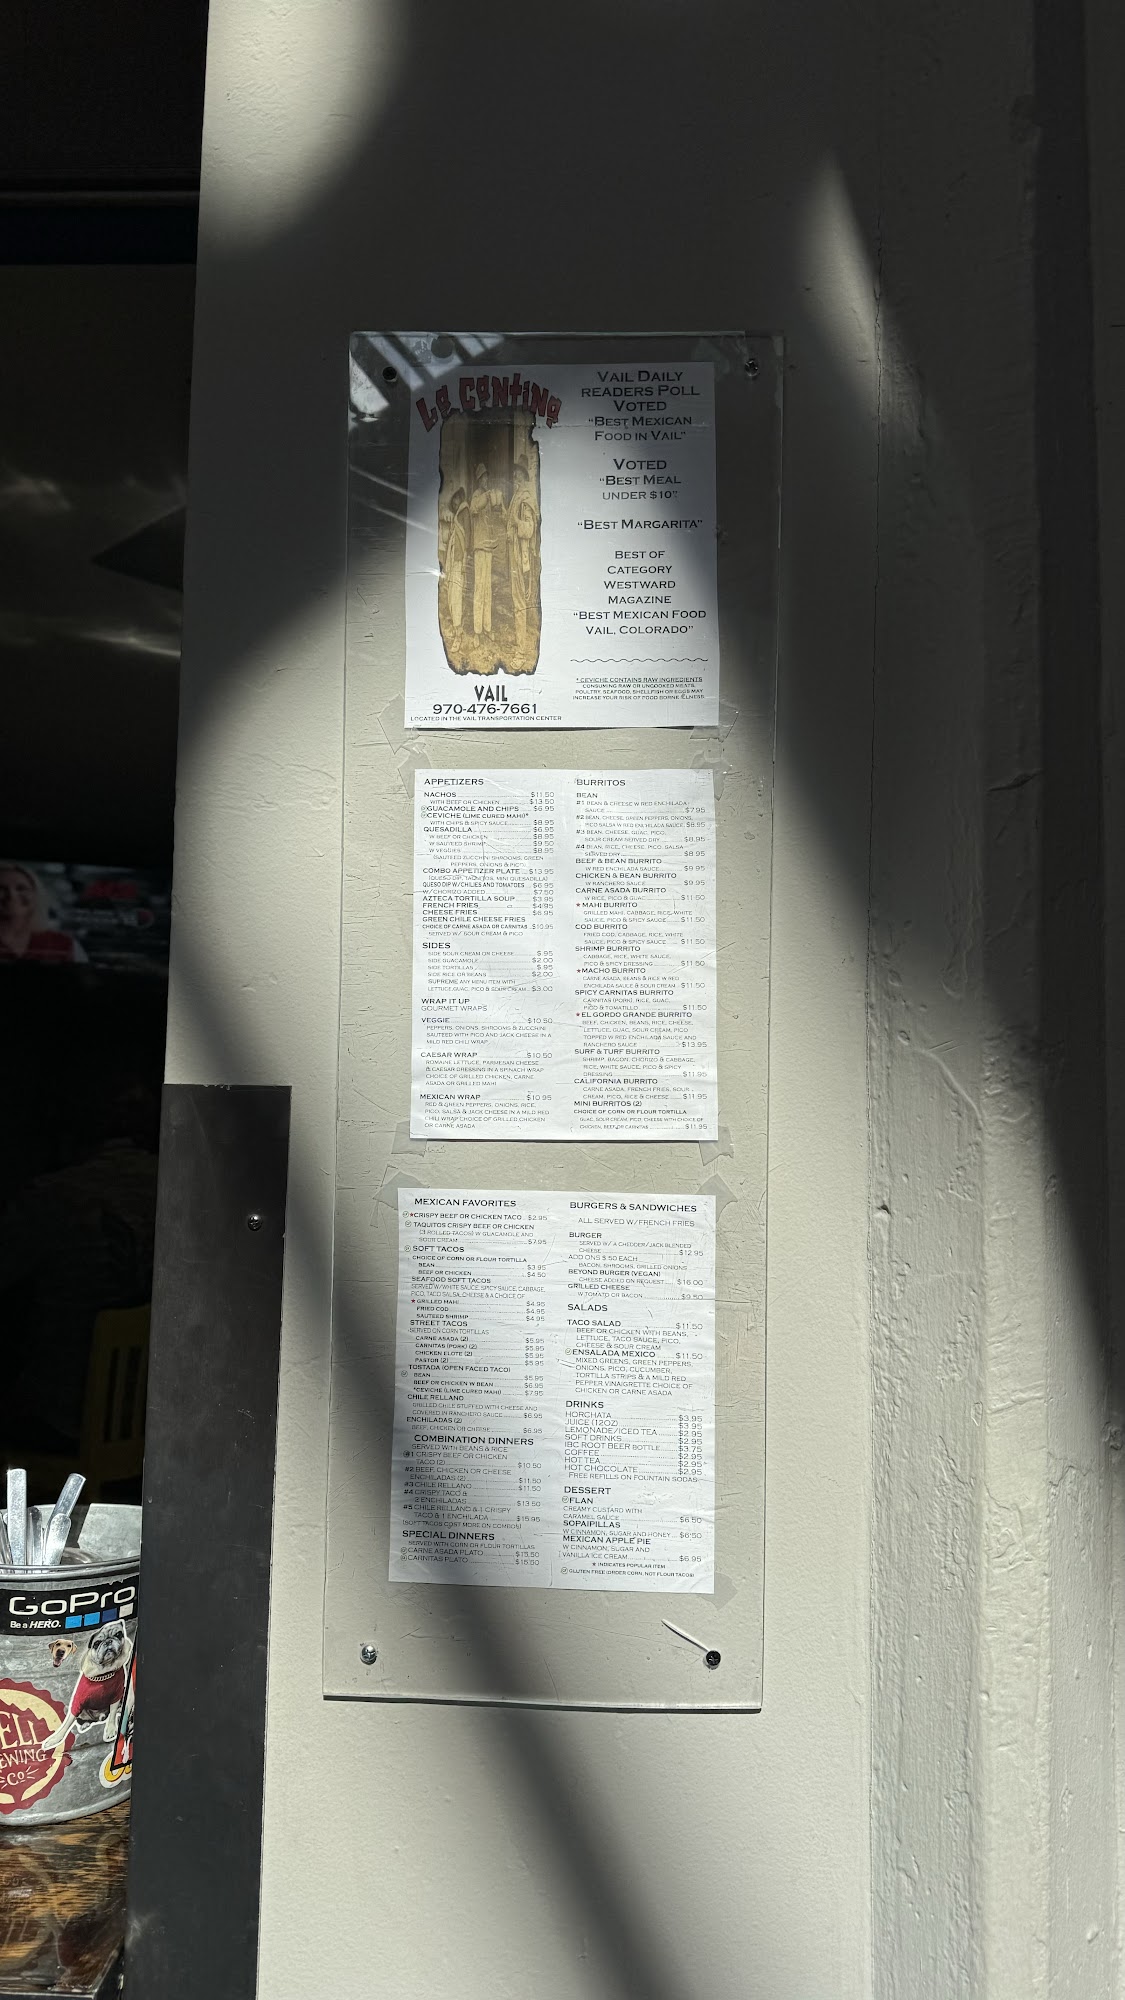 La Cantina
VAIL
970-476-7661
LOCATED IN THE VAIL TRANSPORTATION CENTER
VAIL DAILY
READERS POLL
VOTED
"BEST MEXICAN
FOOD IN VAIL"
VOTED
"BEST MEAL
UNDER $10"
"BEST MARGARITA"
BEST OF
CATEGORY
WESTWARD
MAGAZINE
"BEST MEXICAN FOOD
VAIL, COLORADO"
* CEVICHE CONTAINS RAW INGREDIENTS
CONSUMING RAW OR UNCOOKED MEATS,
POULTRY, SEAFOOD, SHELLFISH OR EGGS MAY
INCREASE YOUR RISK OF FOOD BORNE ILLNESS
APPETIZERS
NACHOS $11.50
WITH BEEF OR CHICKEN $13.50
GUACAMOLE AND CHIPS $6.95
CEVICHE (LIME CURED MAHI)*
WITH CHIPS & SPICY SAUCE $8.95
QUESADILLA $6.95
W BEEF OR CHICKEN $8.95
W SAUTEED SHRIMP $9.50
W VEGGIES $8.95
(SAUTEED ZUCCHINI SHROOMS, GREEN
PEPPERS, ONIONS & PICO)
COMBO APPETIZER PLATE $13.95
(QUESO DIP, TAQUITOS, MINI QUESADILLA)
QUESO DIP W/CHILIES AND TOMATOES $6.95
W/CHORIZO ADDED $7.50
AZTECA TORTILLA SOUP $3.95
FRENCH FRIES $4.95
CHEESE FRIES $6.95
GREEN CHILE CHEESE FRIES
CHOICE OF CARNE ASADA OR CARNITAS $10.95
SERVED W/ SOUR CREAM & PICO
SIDES
SIDE SOUR CREAM OR CHEESE $ 95
SIDE GUACAMOLE $2.00
SIDE TORTILLAS $ 95
SIDE RICE OR BEANS $2.00
SUPREME ANY MENU ITEM WITH
LETTUCE,GUAC, PICO & SOUR CREAM $3.00
WRAP IT UP
GOURMET WRAPS
VEGGIE $10.50
PEPPERS, ONIONS, SHROOMS & ZUCCHINI
SAUTEED WITH PICO AND JACK CHEESE IN A
MILD RED CHILI WRAP
CAESAR WRAP $10.50
ROMAINE LETTUCE, PARMESAN CHEESE
& CAESAR DRESSING IN A SPINACH WRAP
CHOICE OF GRILLED CHICKEN, CARNE
ASADA OR GRILLED MAHI
MEXICAN WRAP $10.95
RED & GREEN PEPPERS, ONIONS, RICE,
PICO, SALSA & JACK CHEESE IN A MILD RED
CHILI WRAP CHOICE OF GRILLED CHICKEN
OR CARNE ASADA
BURRITOS
BEAN
#1 BEAN & CHEESE W RED ENCHILADA
SAUCE $7.95
#2 BEAN, CHEESE, GREEN PEPPERS, ONIONS,
PICO SALSA W RED ENCHILADA SAUCE $8.95
#3 BEAN, CHEESE, GUAC, PICO,
SOUR CREAM SERVED DRY $8.95
#4 BEAN, RICE, CHEESE, PICO, SALSA
SERVED DRY $8.95
BEEF & BEAN BURRITO
W RED ENCHILADA SAUCE $9.95
CHICKEN & BEAN BURRITO
W RANCHERO SAUCE $9.95
CARNE ASADA BURRITO
W RICE, PICO & GUAC $11.50
★MAHI BURRITO
GRILLED MAHI, CABBAGE, RICE, WHITE
SAUCE, PICO & SPICY SAUCE $11.50
COD BURRITO
FRIED COD, CABBAGE, RICE, WHITE
SAUCE, PICO & SPICY SAUCE $11.50
SHRIMP BURRITO
CABBAGE, RICE, WHITE SAUCE,
PICO & SPICY DRESSING $11.50
★MACHO BURRITO
CARNE ASADA, BEANS & RICE W RED
ENCHILADA SAUCE & SOUR CREAM $11.50
SPICY CARNITAS BURRITO
CARNITAS (PORK), RICE, GUAC,
PICO & TOMATILLO $11.50
★EL GORDO GRANDE BURRITO
BEEF, CHICKEN, BEANS, RICE, CHEESE,
LETTUCE, GUAC, SOUR CREAM, PICO
TOPPED W RED ENCHILADA SAUCE AND
RANCHERO SAUCE $13.95
SURF & TURF BURRITO
SHRIMP, BACON, CHORIZO & CABBAGE,
RICE, WHITE SAUCE, PICO & SPICY
DRESSING $11.95
CALIFORNIA BURRITO
CARNE ASADA, FRENCH FRIES, SOUR
CREAM, PICO, RICE & CHEESE $11.95
MINI BURRITOS (2)
CHOICE OF CORN OR FLOUR TORTILLA
GUAC, SOUR CREAM, PICO, CHEESE WITH CHOICE OF
CHICKEN, BEEF OR CARNITAS $11.95
MEXICAN FAVORITES
★CRISPY BEEF OR CHICKEN TACO $2.95
TAQUITOS CRISPY BEEF OR CHICKEN
(3 ROLLED TACOS) W GUACAMOLE AND
SOUR CREAM $7.95
SOFT TACOS
CHOICE OF CORN OR FLOUR TORTILLA
BEAN $3.95
BEEF OR CHICKEN $4.50
SEAFOOD SOFT TACOS
SERVED W/WHITE SAUCE, SPICY SAUCE, CABBAGE,
PICO, TACO SALSA, CHEESE & A CHOICE OF
★GRILLED MAHI $4.95
FRIED COD $4.95
SAUTEED SHRIMP $4.95
STREET TACOS
SERVED ON CORN TORTILLAS
CARNE ASADA (2) $5.95
CARNITAS (PORK) (2) $5.95
CHICKEN ELOTE (2) $5.95
PASTOR (2) $5.95
TOSTADA (OPEN FACED TACO)
BEAN $5.95
BEEF OR CHICKEN W BEAN $6.95
*CEVICHE (LIME CURED MAHI) $7.95
CHILE RELLANO
GRILLED CHILE STUFFED WITH CHEESE AND
COVERED IN RANCHERO SAUCE $6.95
ENCHILADAS (2)
BEEF, CHICKEN OR CHEESE $6.95
COMBINATION DINNERS
SERVED WITH BEANS & RICE
#1 CRISPY BEEF OR CHICKEN
TACO (2) $10.50
#2 BEEF, CHICKEN OR CHEESE
ENCHILADAS (2) $11.50
#3 CHILE RELLANO $11.50
#4 CRISPY TACO &
2 ENCHILADAS $13.50
#5 CHILE RELLANO & 1 CRISPY
TACO & 1 ENCHILADA $15.95
(SOFT TACOS COST MORE ON COMBOS)
SPECIAL DINNERS
SERVED WITH CORN OR FLOUR TORTILLAS
CARNE ASADA PLATO $15.50
CARNITAS PLATO $15.50
BURGERS & SANDWICHES
ALL SERVED W/FRENCH FRIES
BURGER
SERVED W/ A CHEDDER/JACK BLENDED
CHEESE $12.95
ADD ONS $.50 EACH
BACON, SHROOMS, GRILLED ONIONS
BEYOND BURGER (VEGAN)
CHEESE ADDED ON REQUEST $16.00
GRILLED CHEESE
W TOMATO OR BACON $9.50
SALADS
TACO SALAD $11.50
BEEF OR CHICKEN WITH BEANS,
LETTUCE, TACO SAUCE, PICO,
CHEESE & SOUR CREAM
ENSALADA MEXICO $11.50
MIXED GREENS, GREEN PEPPERS,
ONIONS, PICO, CUCUMBER,
TORTILLA STRIPS & A MILD RED
PEPPER VINAIGRETTE CHOICE OF
CHICKEN OR CARNE ASADA
DRINKS
HORCHATA $3.95
JUICE (12OZ) $3.95
LEMONADE/ICED TEA $2.95
SOFT DRINKS $2.95
IBC ROOT BEER BOTTLE $3.75
COFFEE $2.95
HOT TEA $2.95
HOT CHOCOLATE $2.95
FREE REFILLS ON FOUNTAIN SODAS
DESSERT
FLAN
CREAMY CUSTARD WITH
CARAMEL SAUCE $6.50
SOPAIPILLAS
W CINNAMON, SUGAR AND HONEY $6.50
MEXICAN APPLE PIE
W CINNAMON, SUGAR AND
VANILLA ICE CREAM $6.95
★ INDICATES POPULAR ITEM
GLUTEN FREE (ORDER CORN, NOT FLOUR TACOS)
GoPro
Be a HERO.
ELL
EWING
Co